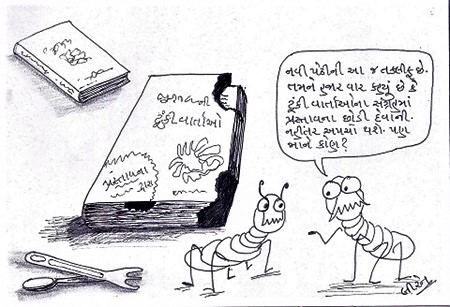 નવી પેઢીની આ જ તકલીફ છે.
તમને હજાર વાર કહ્યું છે કે
ટૂંકી વાર્તાઓના સંગ્રહમાં
પ્રસ્તાવના છોડી દેવાની.
નહીંતર અપચો થશે. પણ
માને કોણ?
ટૂંકી વાર્તાઓ
પ્રસ્તાવના